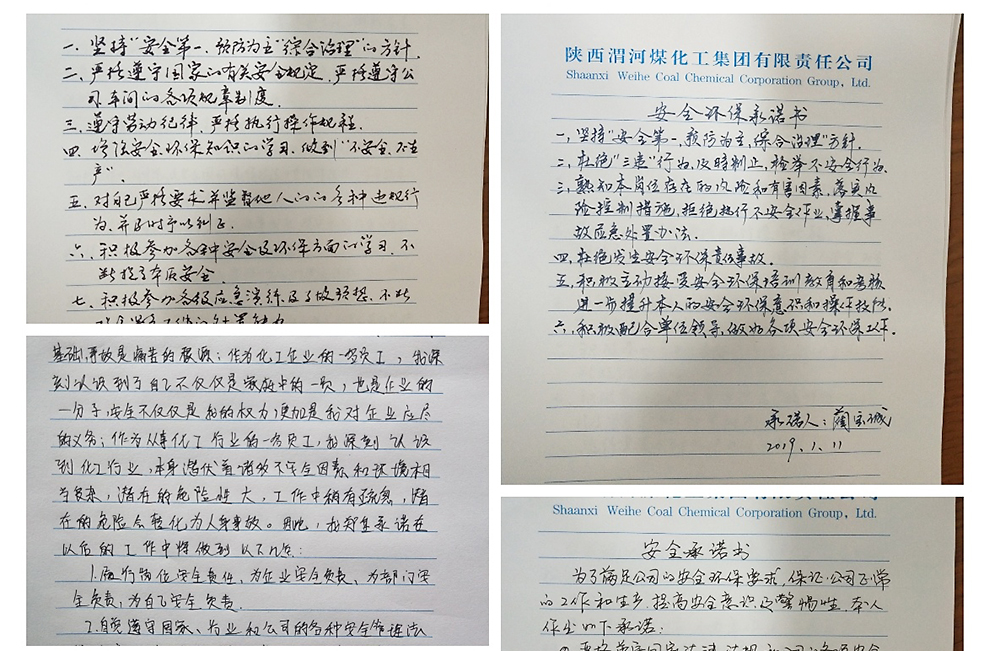 一、坚持"安全第一、预防为主"综合治理"的方针.
二、严格遵守国家的有关安全规定、严格遵守公
司车间的各项规章制度.
三、遵守劳动纪律、严格执行操作规程.
四、增强安全、环保知识的学习、做到"不安全、不生
产".
五、对自己严格要求并监督他人的的各种违规行
为、并及时予以纠正.
六、积极参加各种安全及环保方面的学习、不
断提高本质安全
七、积极参加各级应急演练
基础,事故是痛苦的根源;作为化工企业的一名员工,我深
刻认识到了自己不仅仅是家庭中的一员,也是企业的
一分子,安全不仅仅是我的权力,更加是我对企业应尽
的义务;作为从事化工行业的一名员工,我深刻认识
到化工行业,本身潜伏着诸多不安全因素和环境相
潜在的危险性大,工作中稍有疏忽,潜
在的危险会转化为人身事故。因此,我郑重承诺在
以后的工作中将做到以下几条:
1.履行岗位安全责任、为企业安全负责、为部门安
全负责,为自己安全负责.
2.自觉遵守国家、行业和公司的各种安全管理法
陕西渭河煤化工集团有限责任公司
Shaanxi Weihe Coal Chemical Corporation Group, Ltd.
安全环保承诺书
一,坚持"安全第一,预防为主,综合治理"方针.
二、杜绝"三违"行为,及时制止,检举不安全行为.
三、熟知本岗位存在的风险和有害因素,落实风
险控制措施,拒绝执行不安全作业,掌握事
故应急处置办法.
四.杜绝发生安全环保责任事故.
五.积极主动接受安全环保培训教育和考核
进一步提升本人的安全环保意识和操作技能.
六、积极配合单位领导,做好各项安全环保工作.
承诺人:蔺宝诚
2019.1.11
Shaanxi Weihe Coal Chemical Corporation Group, Ltd.
安全承诺书
为了满足公司的安全环保要求,保证公司正常
的工作和生产,提高安全意识及警惕性,本人
作出如下承诺: